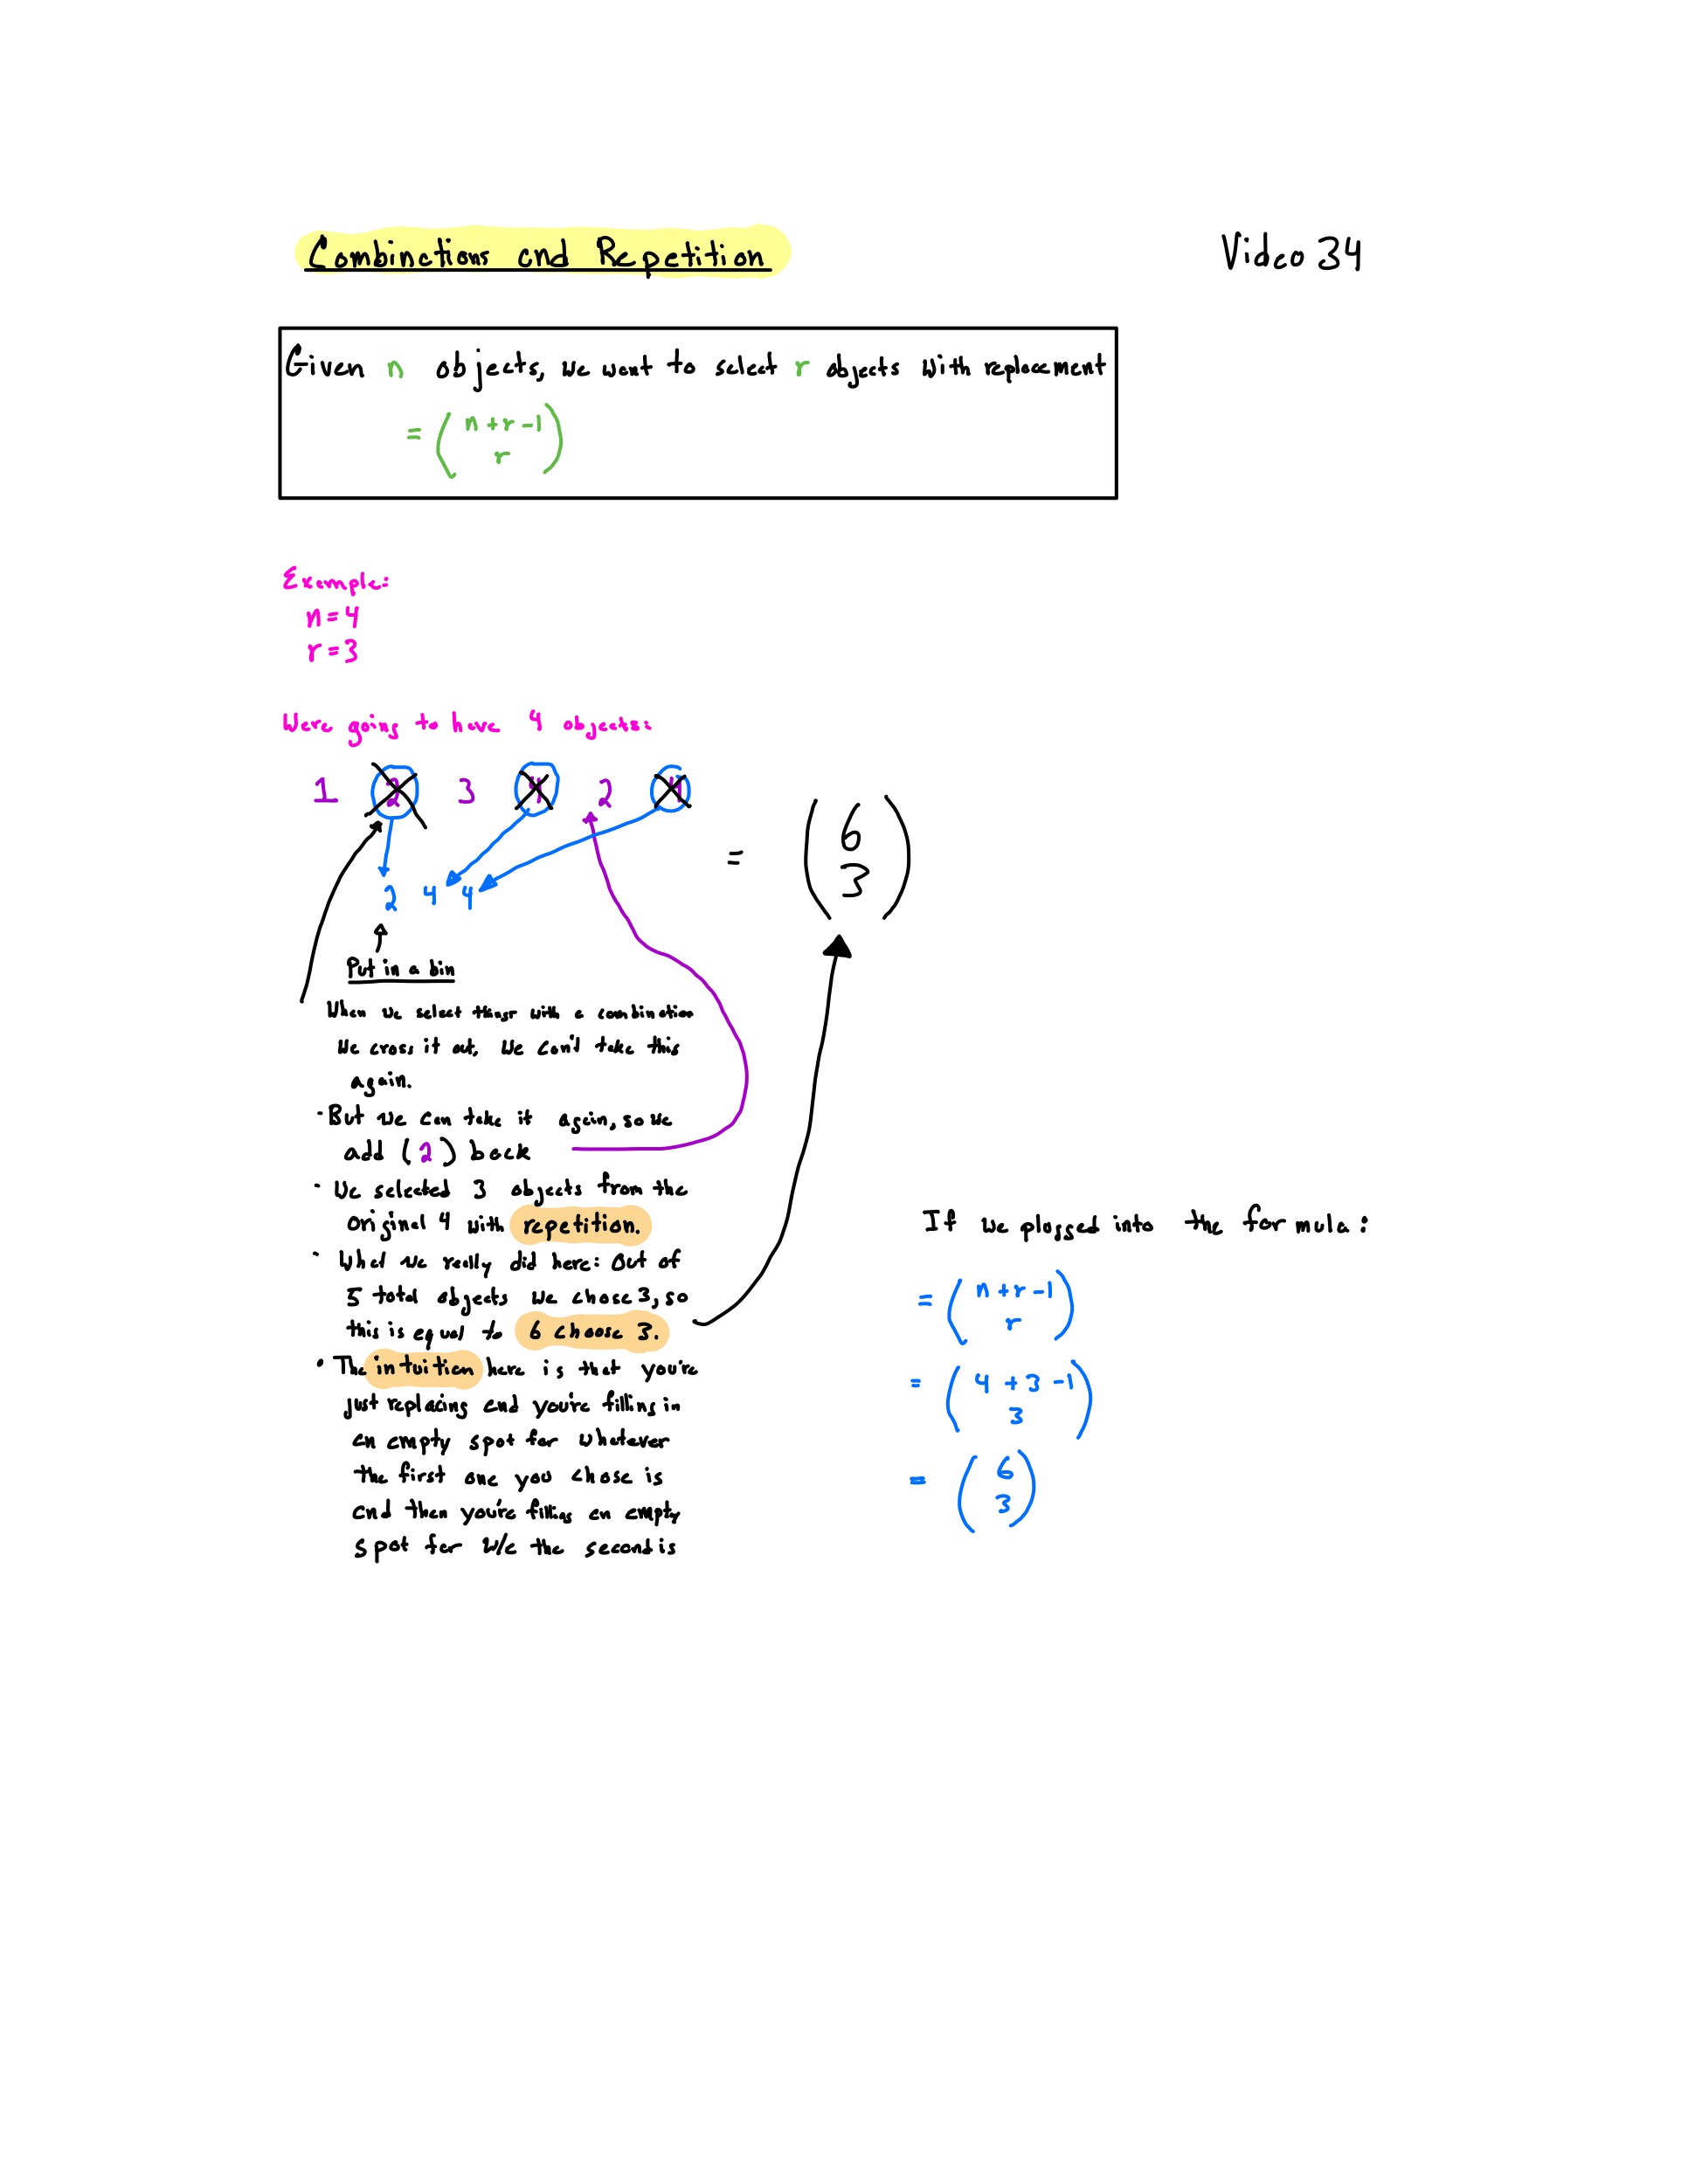 Combinations and Repetition
Video 34
Given n objects, we want to select r objects with replacement
= (n + r - 1
r)
Example:
n = 4
r = 3
Were going to have 4 objects:
1 2 3 4 2 4
2 4 4
= (6
3)
Put in a bin
When we select things with a combination
we cross it out, we can't take this
again.
· But we can take it again, so we
add (2) back
· We selected 3 objects from the
original 4 with repetition.
· What we really did here: Out of
5 total objects we chose 3, so
this is equal to 6 choose 3.
• The intuition here is that you're
just replacing and you're filling in
an empty spot for whatever
the first one you chose is
and then you're filling an empty
spot for w/e the second is
If we plugged into the formula:
= (n + r - 1
r)
= (4 + 3 - 1
3)
= (6
3)